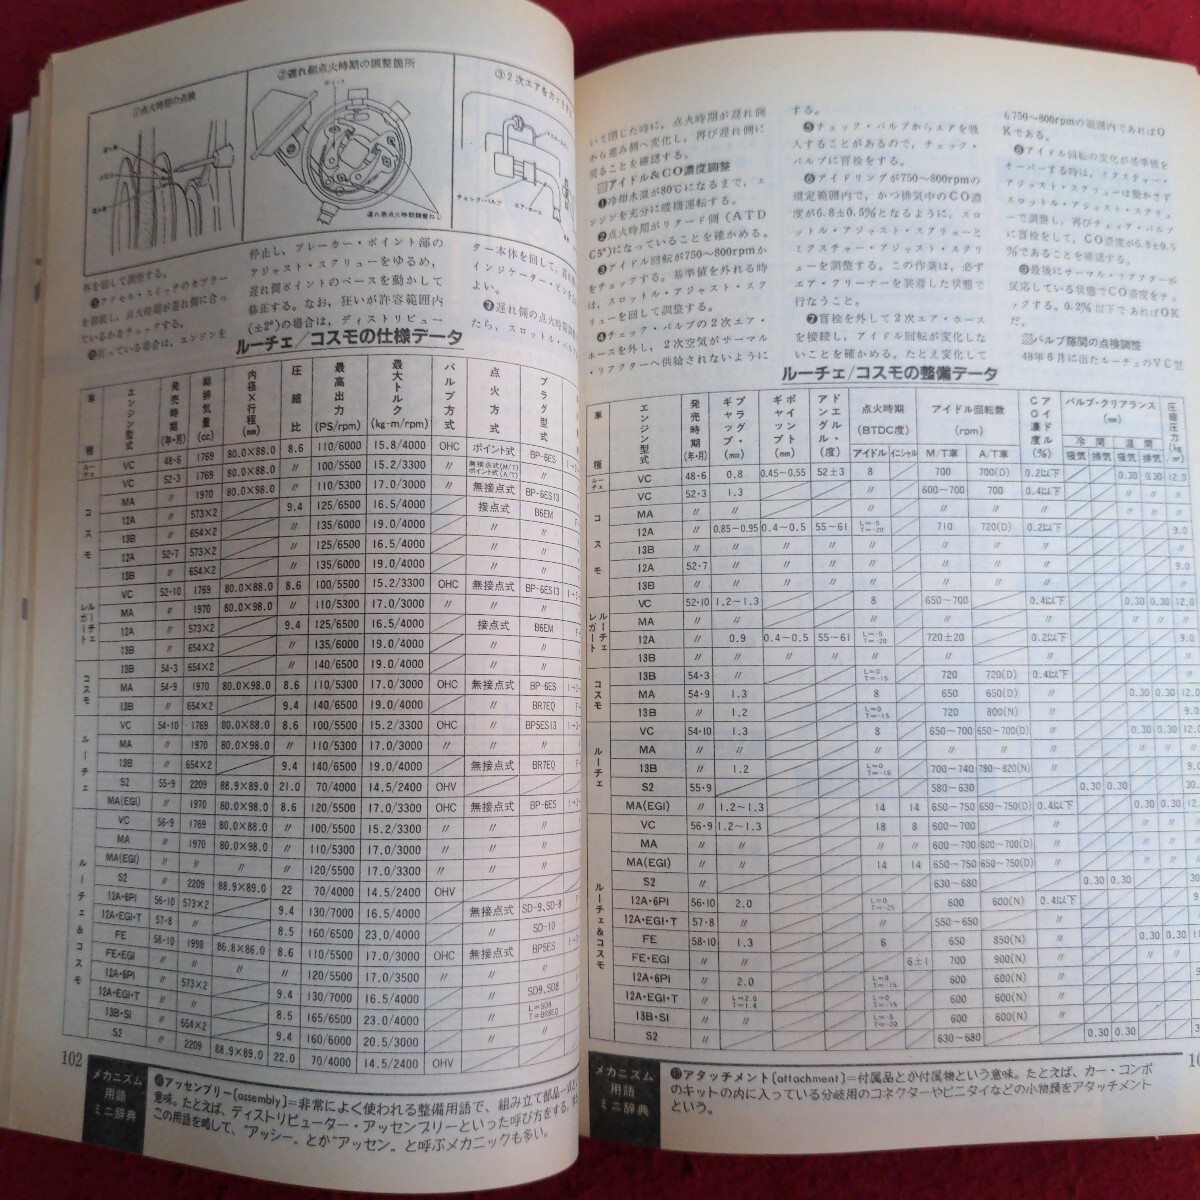 ①点火時期の点検
②遅れ側点火時期の調整箇所
遅れ側点火時期調整ねじ
チェック・バルブ
エア・ホース
体を回して調整する。
❺アクセル・スイッチのカプラー
を接続し、点火時期が遅れ側に合っ
ているかをチェックする。
❻狂っている場合は、エンジンを
停止し、ブレーカー・ポイント部の
アジャスト・スクリューをゆるめ、
遅れ側ポイントのベースを動かして
修正する。なお、狂いが許容範囲内
(±2°)の場合は、ディストリビュー
ター本体を回して、
インジケーター・ピンを
よい。
❼遅れ側の点火時期調整
たら、スロットル・バルブ
ルーチェ/コスモの仕様データ
車種 エンジン型式 発売時期(年・月) 総排気量(cc) 内径×行程(mm) 圧縮比 最高出力(PS/rpm) 最大トルク(kg-m/rpm) バルブ方式 点火方式 プラグ型式
ルーチェ VC 48・6 1769 80.0×88.0 8.6 110/6000 15.8/4000 OHC ポイント式 BP-6ES
コスモ VC 52・3 1769 80.0×88.0 〃 100/5500 15.2/3300 〃 無接点式(M/T) ポイント式(A/T) 〃
MA 〃 1970 80.0×98.0 〃 110/5300 17.0/3000 〃 無接点式 BP-6ES13
12A 〃 573×2 9.4 125/6500 16.5/4000 接点式 B6EM
13B 〃 654×2 〃 135/6000 19.0/4000 〃 〃
12A 52・7 573×2 〃 125/6500 16.5/4000 〃 〃
13B 〃 654×2 〃 135/6000 19.0/4000 〃 〃
ルーチェレガート VC 52・10 1769 80.0×88.0 8.6 100/5500 15.2/3300 OHC 無接点式 BP-6ES13
MA 〃 1970 80.0×98.0 〃 110/5300 17.0/3000 〃 〃 〃
12A 〃 573×2 9.4 125/6500 16.5/4000 接点式 B6EM
13B 〃 654×2 〃 135/6000 19.0/4000 〃 〃
コスモ 13B 54・3 654×2 〃 140/6500 19.0/4000 〃 〃
MA 54・9 1970 80.0×98.0 8.6 110/5300 17.0/3000 OHC 無接点式 BP-6ES
13B 〃 654×2 9.4 140/6500 19.0/4000 〃 BR7EQ
ルーチェ VC 54・10 1769 80.0×88.0 8.6 100/5500 15.2/3300 OHC 〃 BP5ES13
MA 〃 1970 80.0×98.0 〃 110/5300 17.0/3000 〃 〃 〃
13B 〃 654×2 9.4 140/6500 19.0/4000 無接点式 BR7EQ
S2 55・9 2209 88.9×89.0 21.0 70/4000 14.5/2400 OHV
MA(EGI) 〃 1970 80.0×98.0 8.6 120/5500 17.0/3300 OHC 無接点式 BP-6ES
ルーチェ&コスモ VC 56・9 1769 80.0×88.0 〃 100/5500 15.2/3300 〃 〃 〃
MA 〃 1970 80.0×98.0 〃 110/5300 17.0/3000 〃 〃 〃
MA(EGI) 〃 〃 〃 〃 120/5500 17.0/3300 〃 〃 〃
S2 〃 2209 88.9×89.0 22 70/4000 14.5/2400 OHV
12A・6PI 56・10 573×2 9.4 130/7000 16.5/4000 無接点式 SD-9、SD-8
12A・EGI・T 57・8 〃 8.5 160/6500 23.0/4000 〃 SD-10
FE 58・10 1998 86.8×86.0 8.6 110/5500 17.0/3000 OHC 無接点式 BP5ES
FE・EGI 〃 〃 〃 〃 120/5500 17.0/3500 〃 〃 〃
12A・6PI 〃 573×2 9.4 130/7000 16.5/4000 〃 SD9、SD8
12A・EGI・T 〃 〃 8.5 165/6500 23.0/4000 〃 L=SD9 T=BR8EQ
13B・SI 〃 654×2 9.4 160/6000 20.5/3000 〃 〃
S2 〃 2209 88.9×89.0 22.0 70/4000 14.5/2400 OHV
102
メカニズム用語ミニ辞典
アッセンブリー〔assembly〕=非常によく使われる整備用語で、組み立て部品一式という
意味。たとえば、ディストリビューター・アッセンブリーといった呼び方をする。
この用語を略して、“アッシー”とか“アッセン”と呼ぶメカニックも多い。
いて閉じた時に、点火時期が遅れ側
から進み側へ変化し、再び遅れ側に
戻ることを確認する。
アイドル&CO濃度調整
❶冷却水温が80℃になるまで、エ
ンジンを充分に暖機運転する。
❷点火時期がリタード側(ATD
C5°)になっていることを確かめる。
❸アイドル回転が750〜800rpmか
をチェックする。基準値を外れる時
は、スロットル・アジャスト・スク
リューを回して調整する。
❹チェック・バルブの2次エア・
ホースを外し、2次空気がサーマル
・リアクターへ供給されないように
する。
❺チェック・バルブからエアを吸
入することがあるので、チェック・
バルブに盲栓をする。
❻アイドリングが750〜800rpmの
規定範囲内で、かつ排気中のCO濃
度が6.8±0.5%となるように、スロ
ットル・アジャスト・スクリューと
ミクスチャー・アジャスト・スクリ
ューを調整する。この作業は、必ず
エア・クリーナーを装着した状態で
行なうこと。
❼盲栓を外して2次エア・ホース
を接続し、アイドル回転が変化しな
いことを確かめる。たとえ変化して
も750〜800rpmの範囲内であればO
Kである。
❽アイドル回転の変化が基準値を
オーバーする時は、ミクスチャー・
アジャスト・スクリューは動かさず
スロットル・アジャスト・スクリュ
ーで調整し、再びチェック・バルブ
に盲栓をして、CO濃度が6.8±0.5
%であることを確認する。
❾最後にサーマル・リアクターが
反応している状態でCO濃度をチェ
ックする。0.2%以下であればOK
だ。
バルブ隙間の点検調整
48年6月に出たルーチェのVC型
ルーチェ/コスモの整備データ
車種 エンジン型式 発売時期(年・月) プラグ・ギャップ(mm) ポイント・ギャップ(mm) ドエル・アングル(度) 点火時期(BTDC度) アイドル イニシャル アイドル回転数(rpm) M/T車 A/T車 アイドルCO濃度(%) バルブ・クリアランス(mm) 冷間 温間 吸気 排気 吸気 排気 圧縮圧力
ルーチェ VC 48・6 0.8 0.45〜0.55 52±3 8 700 700(D) 0.2以下 0.30 0.30 12.0
コスモ VC 52・3 1.3 〃 600〜700 700 0.4以下 〃 〃 〃
MA 〃 〃 〃 〃 〃 〃
12A 〃 0.85〜0.95 0.4〜0.5 55〜61 L=-5 T=-20 710 720(D) 0.2以下 9.0
13B 〃 〃 〃 〃 〃 〃 〃 〃
12A 52・7 〃 〃 〃 〃 〃 〃 〃 9.0
13B 〃 〃 〃 〃 〃 〃 〃 〃
ルーチェレガート VC 52・10 1.2〜1.3 8 650〜700 0.4以下 0.30 0.30 12.0
MA 〃 〃 〃 〃 〃
12A 〃 0.9 0.4〜0.5 55〜61 L=-5 T=-20 720±20 0.2以下 9.0
13B 〃 〃 〃 〃 〃 〃 〃
コスモ 13B 54・3 〃 L=0 T=-15 720 720(D) 0.4以下
MA 54・9 1.3 8 650 650(D) 〃 0.30 0.30 12.0
13B 〃 1.2 L=0 T=-15 720 800(N) 〃 9.0
ルーチェ VC 54・10 1.3 8 650〜700 650〜700(D) 〃 0.30 0.30 12.0
MA 〃 〃 〃 〃 〃 〃 〃 〃
13B 〃 1.2 L=0 T=-15 700〜740 780〜820(N) 〃 9.0
S2 55・9 580〜630 0.30 0.30 30.
MA(EGI) 〃 1.2〜1.3 14 14 650〜750 650〜750(D) 0.4以下 0.30 0.30 12.
ルーチェ&コスモ VC 56・9 1.2〜1.3 18 8 600〜700 〃 〃 〃
MA 〃 〃 〃 〃 600〜700 600〜700(D) 〃 〃 〃
MA(EGI) 〃 〃 14 14 650〜750 650〜750(D) 〃 〃 〃
S2 〃 630〜680 0.30 0.30 30
12A・6PI 56・10 2.0 L=0 T=-25 600 600(N) 0.4以下
12A・EGI・T 57・8 〃 〃 550〜650 〃
FE 58・10 1.3 6 650 850(N) 〃 0.30 0.30
FE・EGI 〃 〃 6±1 700 900(N) 〃 〃 〃
12A・6PI 〃 2.0 L=0 T=-15 600 600(N) 〃
12A・EGI・T 〃 L=2.0 T=1.4 L=0 T=-15 600 600(N) 〃
13B・SI 〃 〃 L=-5 T=-20 600 600(N) 〃
S2 〃 630〜680 0.30 0.30
メカニズム用語ミニ辞典
アタッチメント〔attachment〕=付属品とか付属物という意味。たとえば、カー・コンポ
のキットの内に入っている分岐用のコネクターやビニタイなどの小物類をアタッチメント
という。